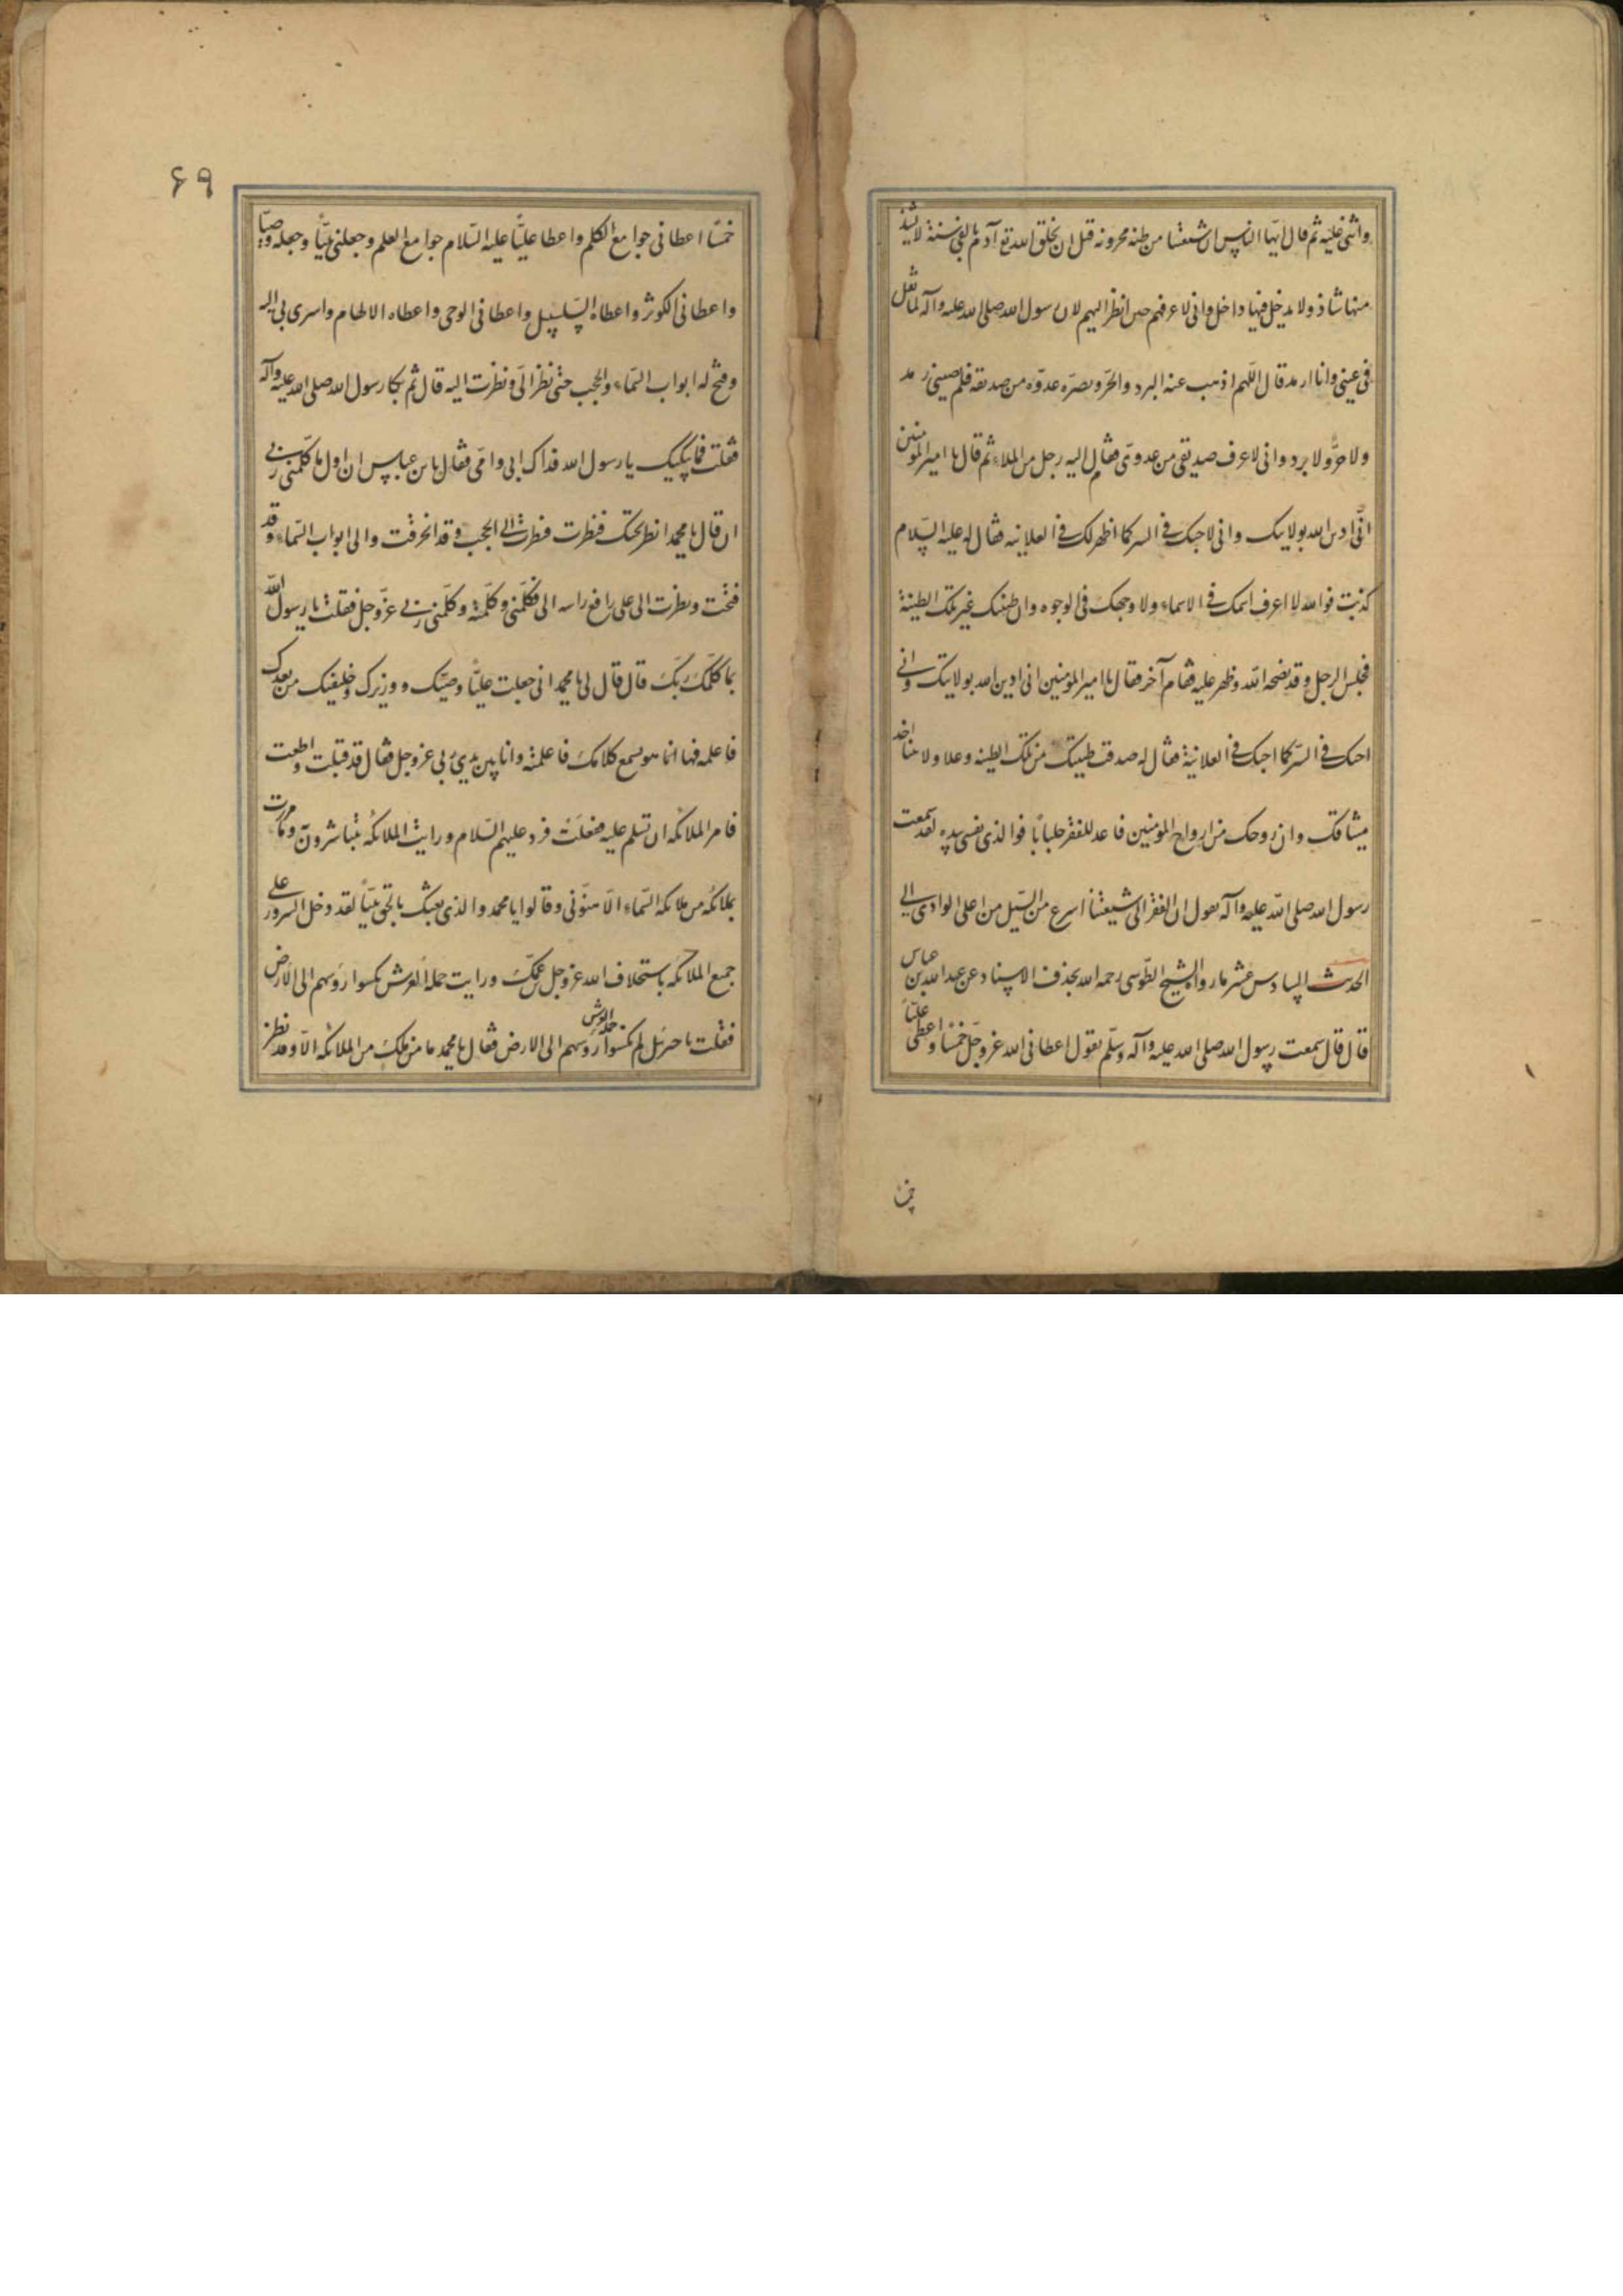 واثنى عليه ثم قال ايها الناس ان شيعتنا من طينة مخزونة قبل ان يخلق الله تع آدم بالفى سنة لا يشذ
منها شاذ ولا يدخل فيها داخل وانى لاعرفهم حين انظر اليهم لان رسول الله صلى الله عليه وآله لما تفل
فى عينى وانا ارمد قال اللهم اذهب عنه البرد والحر وبصره عدوه من صديقه فلم يصبنى رمد
ولا حر ولا برد وانى لاعرف صديقى من عدوى فقام اليه رجل من الملاء ثم قال يا امير المؤمنين
انى ادين الله بولايتك وانى لاحبك فى السر كما اظهر لك فى العلانيه فقال له عليه السلام
كذبت فوالله لا اعرف اسمك فى الاسماء ولا وجهك فى الوجوه وان طينتك غير تلك الطينة
فجلس الرجل وقد فضحه الله وظهر عليه فقام آخر فقال يا امير المؤمنين انى ادين الله بولايتك وانى
احبك فى السر كما احبك فى العلانية فقال له صدقت طينتك من تلك الطينه وعلا ولايتنا اخذ
ميثاقك وان روحك من ارواح المؤمنين فاعد للفقر جلبابا فوالذى نفسى بيده لقد سمعت
رسول الله صلى الله عليه وآله يقول ان الفقر الى شيعتنا اسرع من السيل من اعلى الوادى الى
الحديث السادس عشر ما رواه الشيخ الطوسى رحمه الله بحذف الاسناد عن عبد الله بن عباس
قال قال سمعت رسول الله صلى الله عليه وآله وسلم يقول اعطانى الله عز وجل خمسا واعطى عليا
خمسا
٦٩
خمسا اعطانى جوامع الكلم واعطا عليا عليه السلام جوامع العلم وجعلنى نبيا وجعله وصيا
واعطانى الكوثر واعطاه السلسبيل واعطانى الوحى واعطاه الالهام واسرى بى اليه
وفتح له ابواب السماء والحجب حتى نظر الى ونظرت اليه قال ثم بكا رسول الله صلى الله عليه وآله
فقلت فما يبكيك يا رسول الله فداك ابى وامى فقال يا بن عباس ان اول ما كلمنى ربى
ان قال يا محمد انظر تحتك فنظرت فنظرت الى الحجب وقد انخرقت والى ابواب السماء وقد
فتحت ونظرت الى على رافع راسه الى فكلمنى وكلمته وكلمنى ربى عز وجل فقلت يا رسول الله
بما كلمك ربك قال قال لى يا محمد انى جعلت عليا وصيك ووزيرك وخليفتك من بعدك
فاعلمه فها انما هو يسمع كلامك فاعلمته وانا بين يدى ربى عز وجل فقال قد قبلت واطعت
فامر الملائكه ان تسلم عليه ففعلت فرد عليهم السلام ورايت الملائكه يتباشرون وما مررت
بملائكه من ملائكه السماء الا هنونى وقالوا يا محمد والذى بعثك بالحق نبيا لقد دخل السرور على
جميع الملائكه باستخلاف الله عز وجل ابن عمك ورايت حملة العرش نكسوا روسهم الى الارض
فقلت يا جبرئيل لم نكسوا حملة العرش روسهم الى الارض فقال يا محمد ما من ملك من الملائكه الا وقد نظر